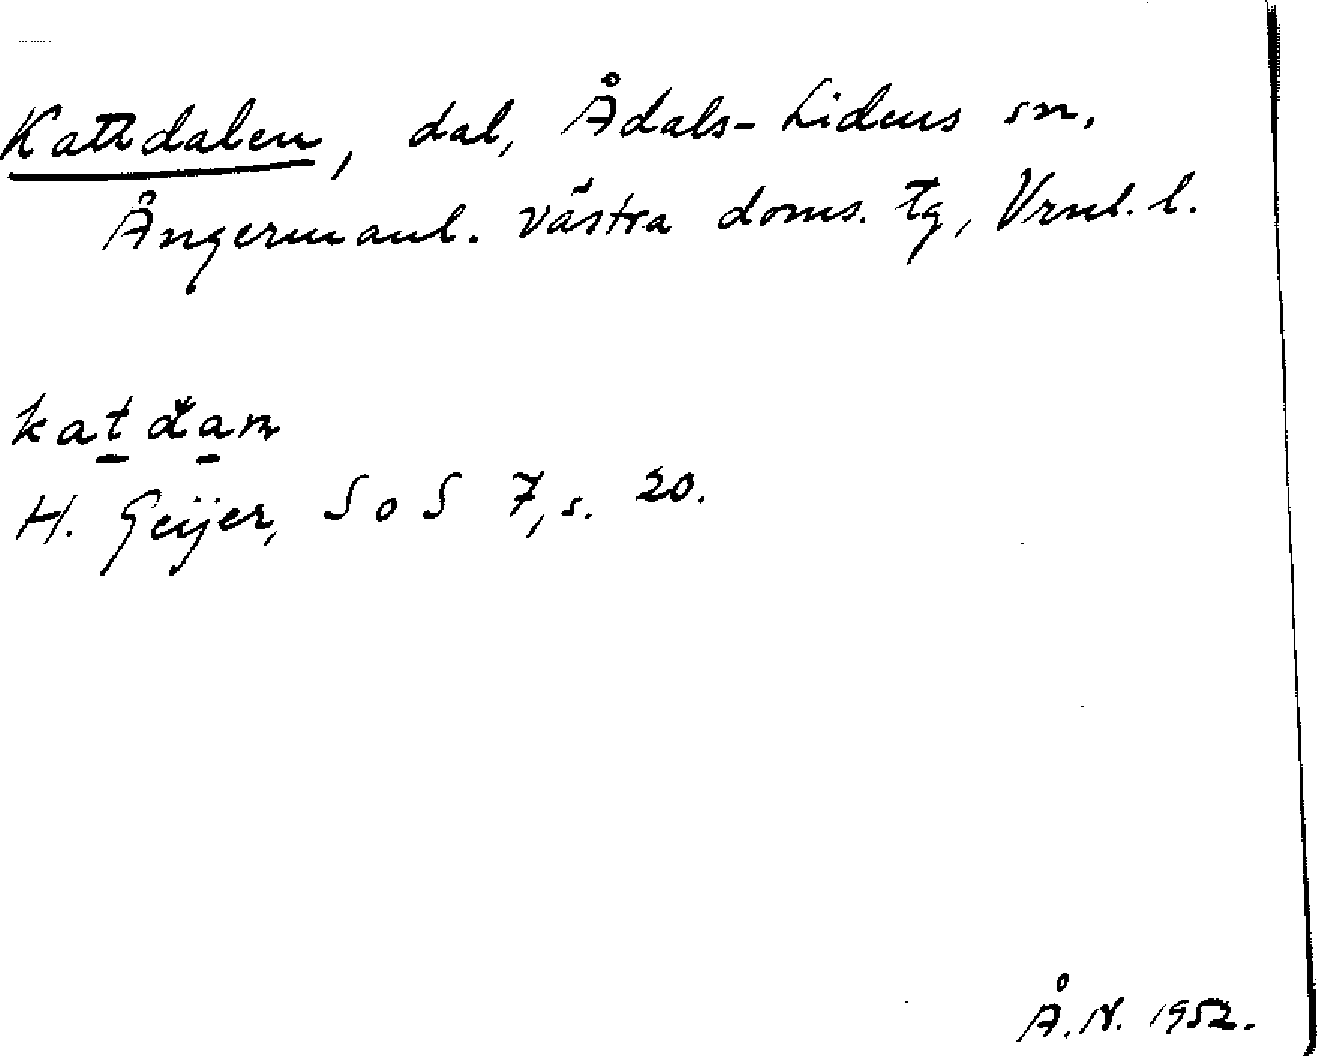 Kattdalen, dal, Ådals-Lidens sn.
Ångermanl. västra doms. tg, Vrnl. l.
katdan
H. Geijer, SoS 7, s. 20.
Å.N. 1952.